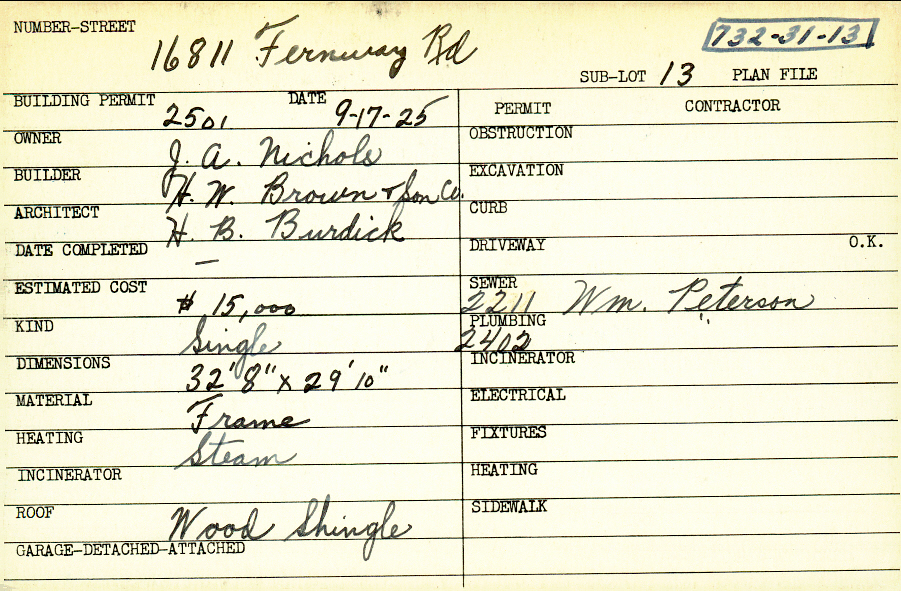 NUMBER-STREET 16811 Fernway Rd 732-31-13
SUB-LOT 13 PLAN FILE
BUILDING PERMIT 2501 DATE 9-17-25
OWNER J. A. Nichols
BUILDER H. W. Brown & Son Co.
ARCHITECT H. B. Burdick
DATE COMPLETED —
ESTIMATED COST $ 15,000
KIND Single
DIMENSIONS 32'8" x 29'10"
MATERIAL Frame
HEATING Steam
INCINERATOR
ROOF Wood Shingle
GARAGE-DETACHED-ATTACHED
PERMIT CONTRACTOR
OBSTRUCTION
EXCAVATION
CURB
DRIVEWAY O.K.
SEWER 2211 Wm. Peterson
PLUMBING 2402 "
INCINERATOR
ELECTRICAL
FIXTURES
HEATING
SIDEWALK